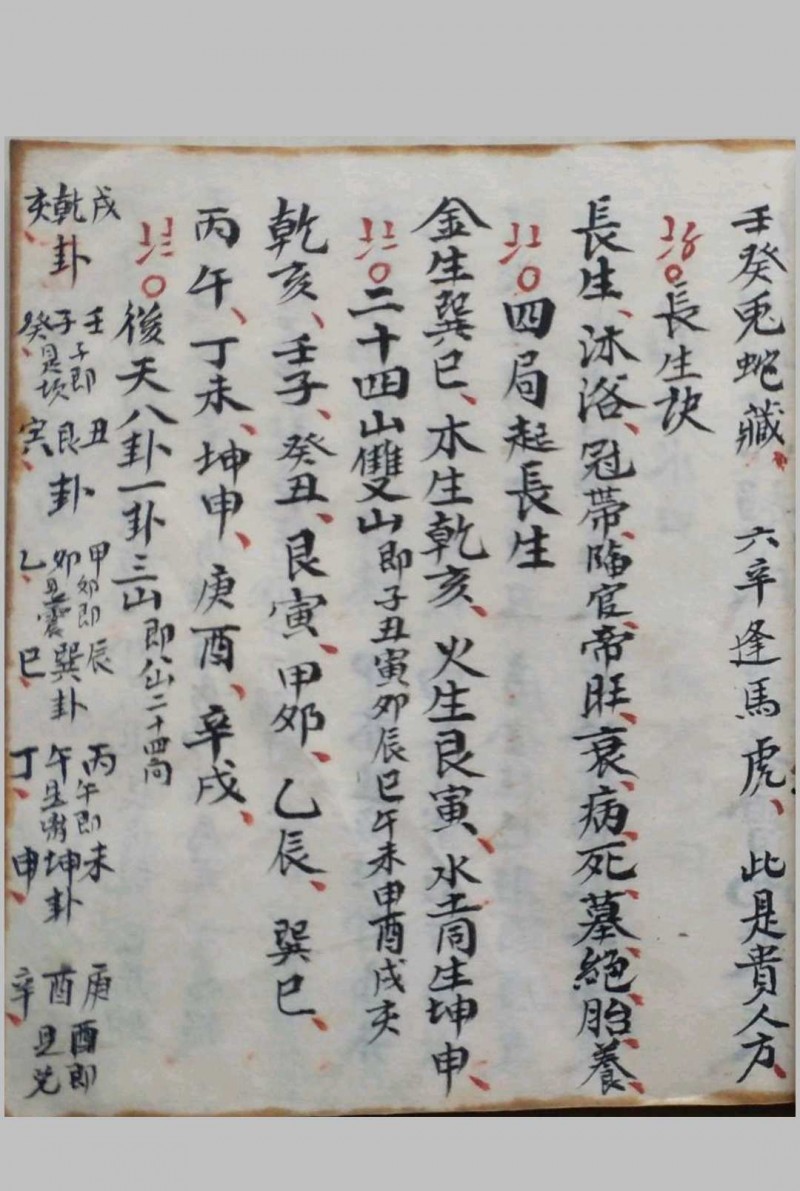 壬癸兎蛇藏、六辛逢馬虎、此是貴人方、
〡〦〇長生訣
長生、沐浴、冠帶、臨官、帝旺、衰、病、死、墓、絕、胎、養、
〡〡〇四局起長生
金生巽巳、木生乾亥、火生艮寅、水土同生坤申、
〡〢〇二十四山雙山即子丑寅卯辰巳午未申酉戌亥
乾亥、壬子、癸丑、艮寅、甲卯、乙辰、巽巳、
丙午、丁未、坤申、庚酉、辛戌、
〇後天八卦一卦三山即八山二十四向
戌乾亥、卦
壬子癸、子即是坎
丑艮寅、卦
甲卯乙、卯即是震
辰巽巳、卦
丙午丁、午即是
未坤申、卦
庚酉辛、酉即是兌